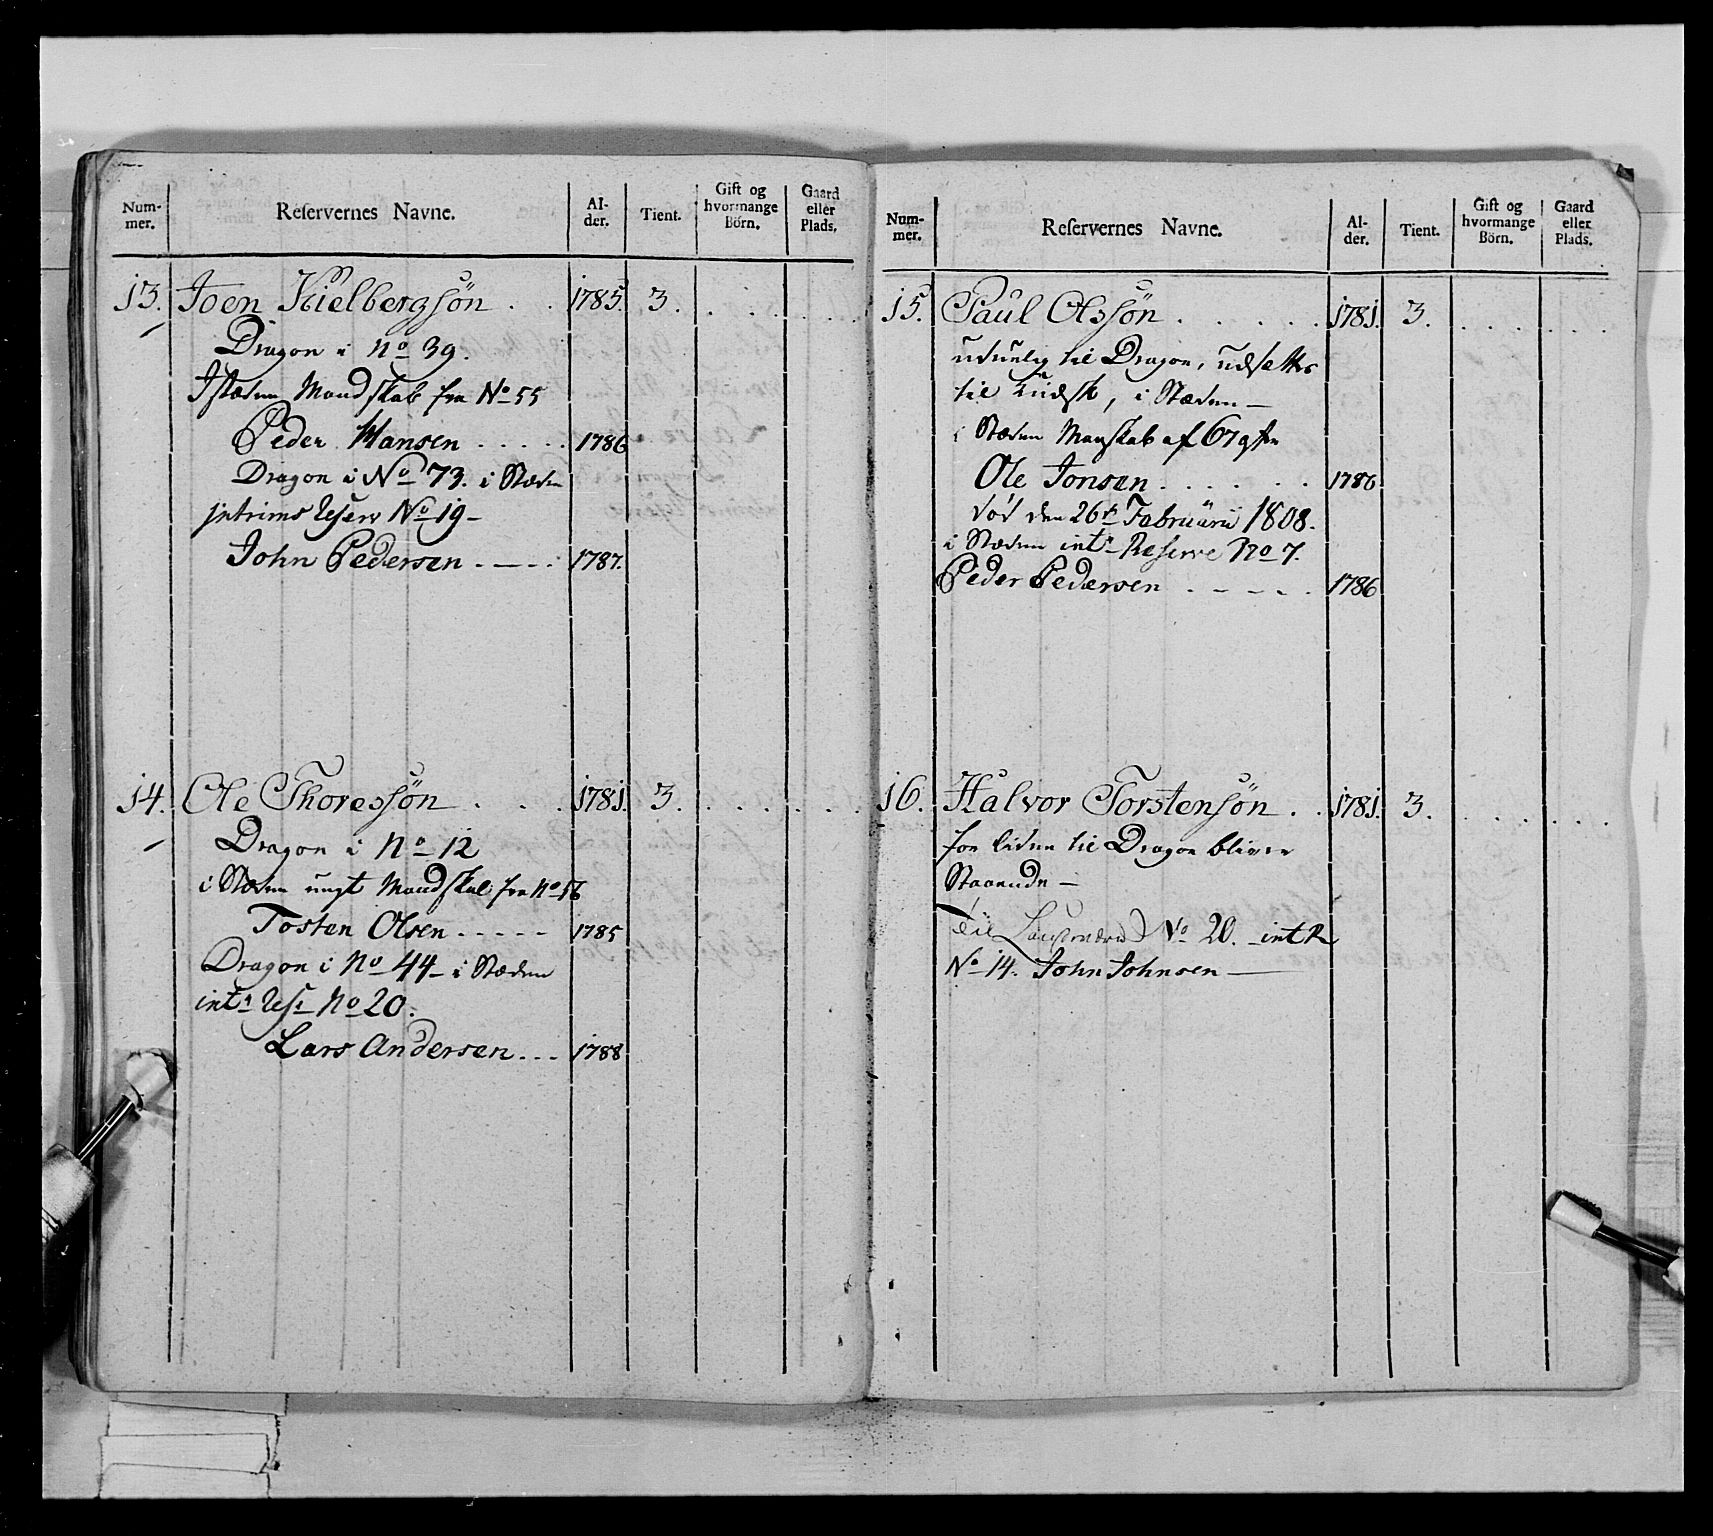 Num-
mer.
Reservernes Navne.
Al-
der.
Tient.
Gift og
hvormange
Börn.
Gaard
eller
Plads.
13. Joen Kielbergsön . . 1785. 3. . . . . . .
Dragon i No 39.
Istæden Mandskab fra No 55
Peder Hansen . . . . . 1786
Dragon i No 73. i Stæden
intrims Reserv No 19-
John Pedersen . - - . . 1787.
14. Ole Thoressön . . . 1781. 3. . . . . . .
Dragon i No 12
i Stæden ungt Mandskab fra No 56
Tosten Olsen - - - - - 1785
Dragon i No 44 - i Stæden
intr Resr No 20.
Lars Andersen . . . 1788
Num-
mer.
Reservernes Navne.
Al-
der.
Tient.
Gift og
hvormange
Börn.
Gaard
eller
Plads.
15. Paul Olssön . . . . . 1781. 3. . . . . . .
uduelig til Dragon, udsættes
til Kudsk, i Stæden -
i Stæden Manskab af 67 gfra
Ole Jonsen . . . . . . 1786
död den 26de Februarii 1808.
i Stæden intr Reserve No 7.
Peder Pedersen . - - - . 1786
16. Halvor Torstensön . . 1781. 3. . . . . . .
for liden til Dragon bliver
Staaende -
Til No 20. intR
No 14. John Johnsen -